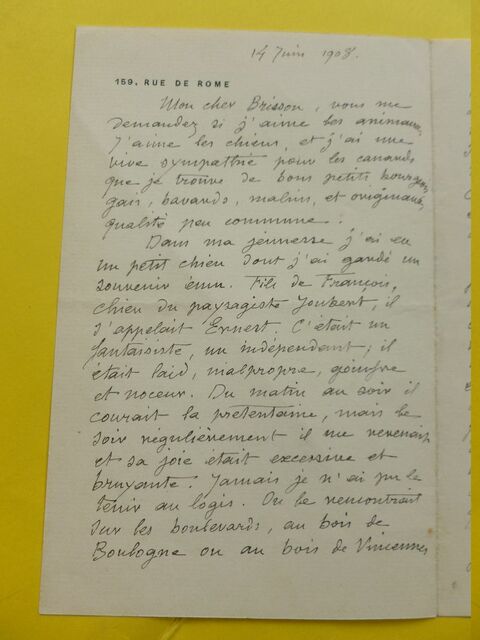 14 Juin 1908.
159, RUE DE ROME
Mon cher Brisson, vous me
demandez si j'aime les animaux,
J'aime les chiens, et j'ai une
vive sympathie pour les canards
que je trouve de bons petits bourgeois
gais, bavards, malins, et originaux,
qualité peu commune.
Dans ma jeunesse j'ai eu
un petit chien dont j'ai gardé un
souvenir ému. Fils de François,
chien du paysagiste Joubert, il
s'appelait Ernest. C'était un
fantaisiste, un indépendant ; il
était laid, malpropre, goinfre
et noceur. Du matin au soir il
courait la pretentaine, mais le
soir régulièrement il me revenait
et sa joie était excessive et
bruyante. Jamais je n'ai pu le
tenir au logis. On le rencontrait
sur les boulevards, au bois de
Boulogne ou au bois de Vincennes